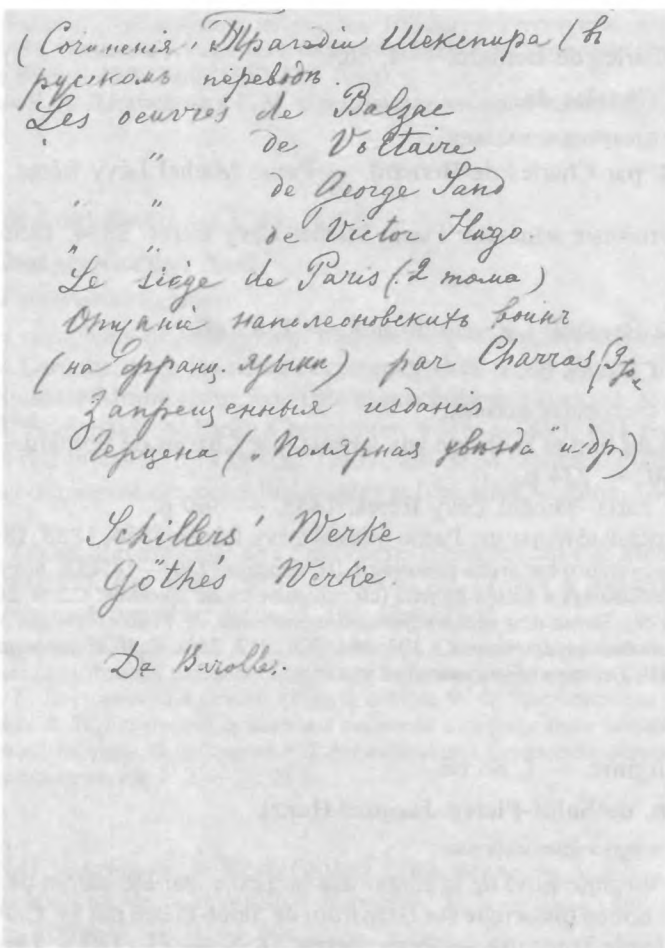 (Сочиненія, Трагэдіи Шекспира / въ
русскомъ переводѣ.
Les oeuvres de Balzac
" de Voltaire
" " de George Sand
" " de Victor Hugo
Le siège de Paris (2 тома)
наполеоновскихъ воинъ
(на франц. языкѣ) par Charras
Запрещенныя изданія
Герцена („Полярная звѣзда" и др.)
Schillers' Werke
Göthés Werke.
De